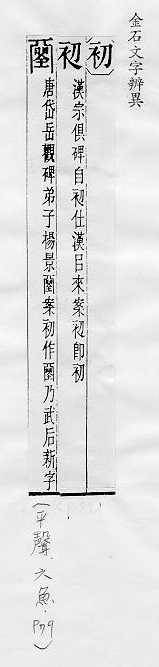 金石文字辨異
初
初 漢宗俱碑自初仕漢㠯來案初即初
𡔈 唐岱岳觀碑弟子楊景𡔈案初作𡔈乃武后新字
(平聲.六魚.P79)